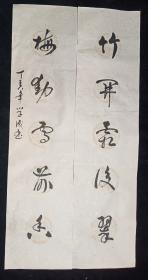 竹开霜后翠
梅动雪前香
丁亥年